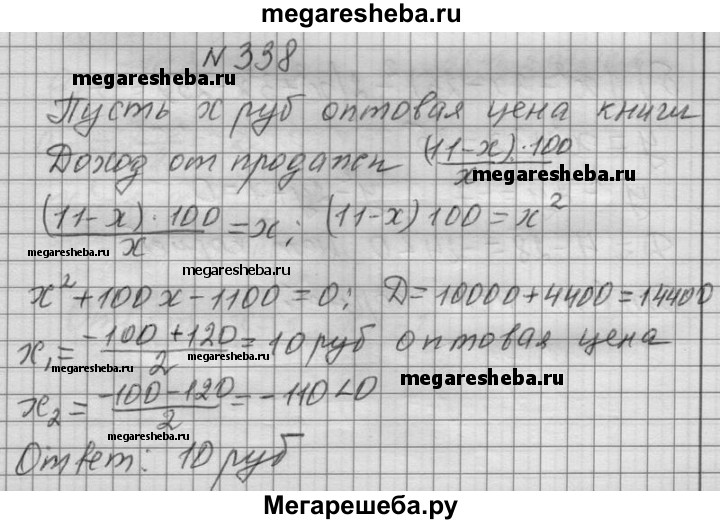 megaresheba.ru
№ 338
megaresheba.ru
Пусть x руб оптовая цена книги
Доход от продажи (11-x)·100/x
megaresheba.ru
(11-x)·100/x = x; (11-x)100 = x²
megaresheba.ru megaresheba.ru
x²+100x-1100=0; D=10000+4400=14400
x₁= -100+120/2 = 10 руб оптовая цена
megaresheba.ru megaresheba.ru
x₂= -100-120/2 = -110<0
megaresheba.ru megaresheba.ru
Ответ: 10 руб
Мегарешеба.ру